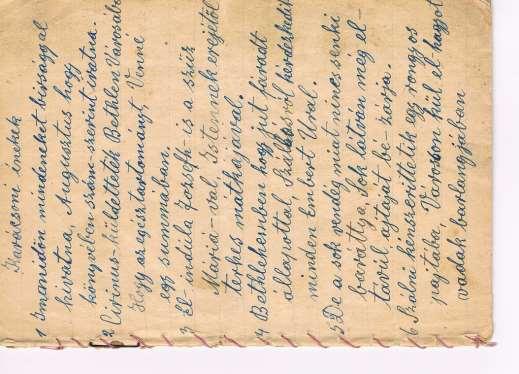 Karácsoni énekek
1 Immondon mindeneket bírsággal
hivatna, Augusztus hogy
könyvében szám-szerint iratna.
2 Cirinus-küldettetik Bethlen Városába
Hogy az egész tartományt, Venne
egy summában.
3 El-indúla József is a szüz
Mariá-val Istennek erejétöl
terhes mátkajával.
4 Bethlehemben hogy jut fáradt
állapottal, Szállásról kérdezkedik
minden embert Ural.
5 De a sok vendég miat nincs senki
baráttya, Sok látván meg el-
távúl ajtaját be-zárja.
6 Szálni kénszeríttetik egy rongyos
pajtába, Városon kül el hagyot
vadak barlangjában